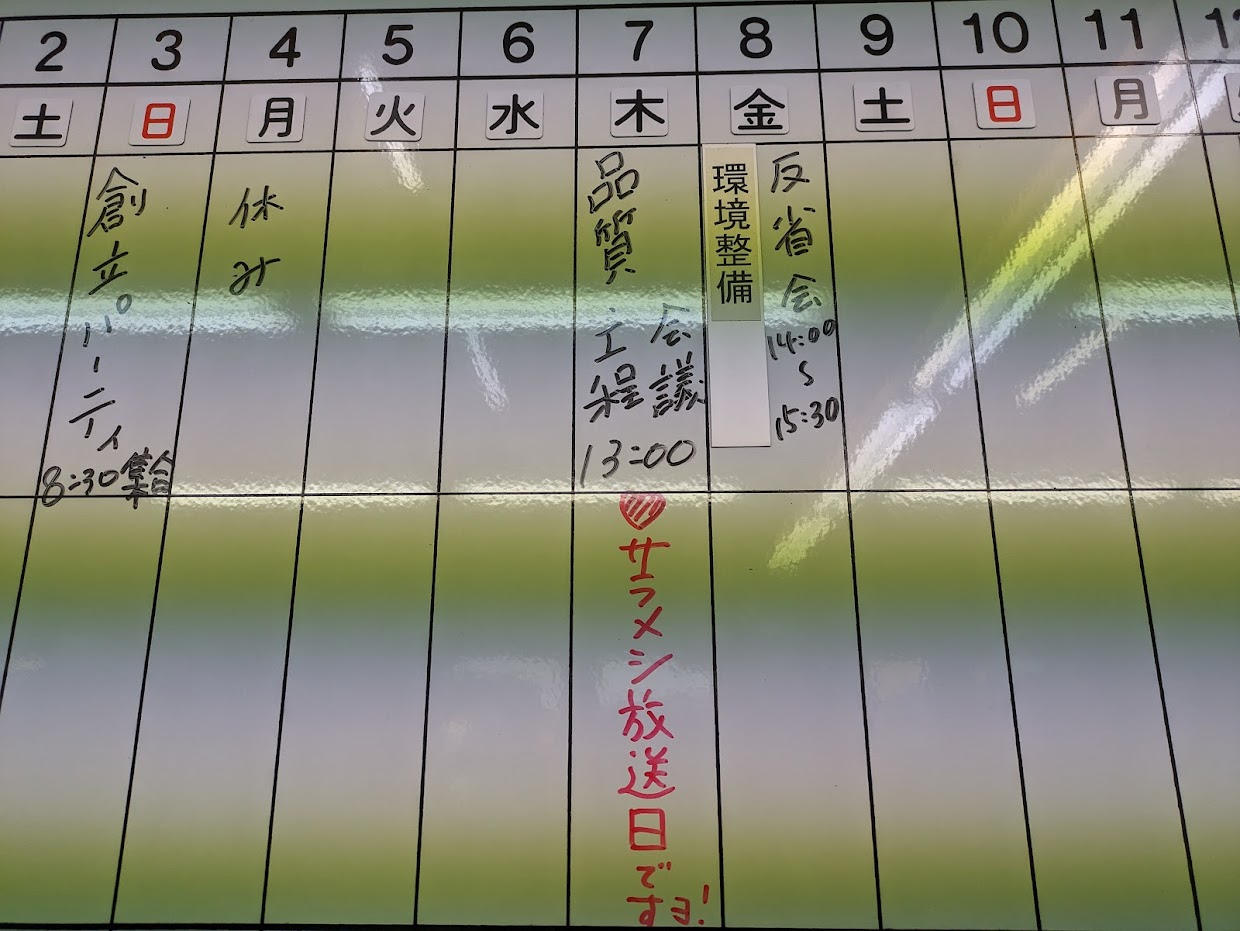 2 3 4 5 6 7 8 9 10 11
土 日 月 火 水 木 金 土 日 月
創立パーティ
8:30集合
休み
品質・工程
会議
13:00
♥サラメシ放送日ですヨ!
環境整備
反省会
14:00
~
15:30